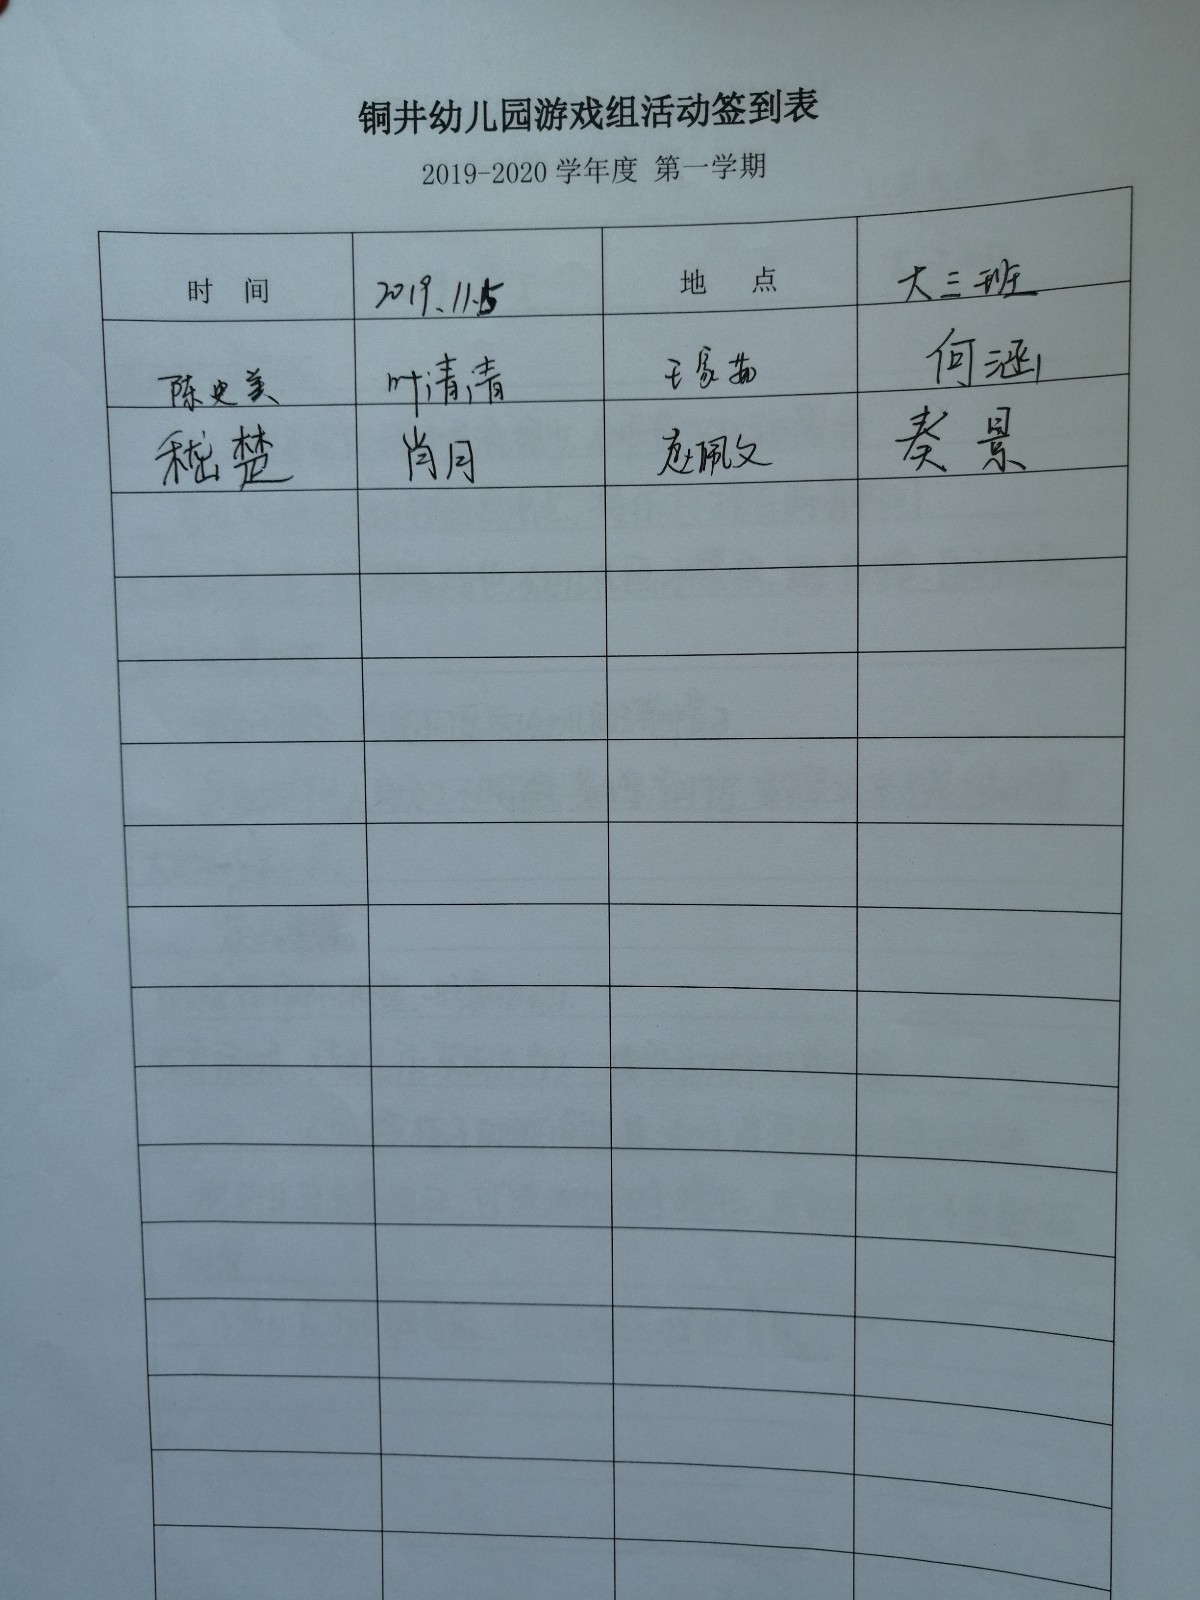 铜井幼儿园游戏组活动签到表
2019-2020 学年度 第一学期
时 间 2019.11.15 地 点 大三班
陈史美 叶清清 何涵
嵇楚 肖月 秦景